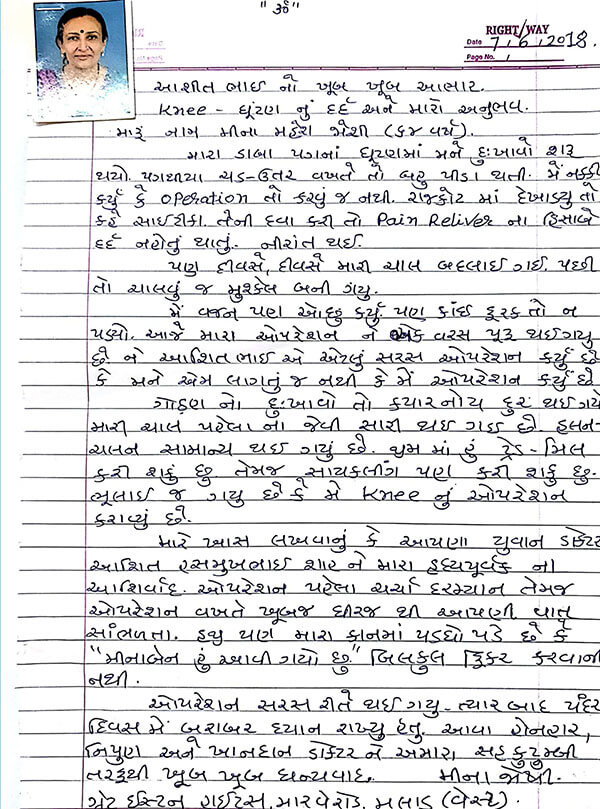 " ૐ "
RIGHT WAY
Date 7/6/2018.
Page No. 1
આશીત ભાઈ નો ખૂબ ખૂબ આભાર.
Knee - ઘૂંટણ નું દર્દ અને મારો અનુભવ.
મારૂં નામ મીના મહેશ જોશી (૬૪ વર્ષ).
મારા ડાબા પગનાં ઘૂંટણમાં મને દુઃખાવો શરૂ
થયો. પગથીયા ચડ-ઉતર વખતે તો બહુ પીડા થતી. મેં નક્કી
કર્યું કે operation તો કરવું જ નથી. રાજકોટ માં દેખાડ્યું તો
કહે સાઈટીકા. તેની દવા કરી તો Pain Reliver ના હિસાબે
દર્દ નહોતું થાતું. નીરાંત થઈ.
પણ દીવસે, દીવસે મારી ચાલ બદલાઈ ગઈ. પછી
તો ચાલવું જ મુશ્કેલ બની ગયુ.
મેં વજન પણ ઓછુ કર્યું. પણ કાંઈ ફરક તો ન
પડ્યો. આજે મારા ઓપરેશન ને એક વરસ પૂરૂ થઈ ગયુ
છે. ને આશિત ભાઈ એ એટલું સરસ ઓપરેશન કર્યું છે
કે મને એમ લાગતું જ નથી કે મેં ઓપરેશન કર્યું છે
ગોઠણ નો દુઃખાવો તો ક્યારનોય દુર થઈ ગયો
મારી ચાલ પહેલા ના જેવી સારી થઈ ગઈ છે. હલન-
ચલન સામાન્ય થઈ ગયું છે. જીમ માં હું ટ્રેડ-મિલ
કરી શકું છુ તેમજ સાયકલીંગ પણ કરી શકું છુ.
ભૂલાઈ જ ગયુ છે કે મે Knee નું ઓપરેશન
કરાવ્યું છે.
મારે ખાસ લખવાનું કે આપણા યુવાન ડોક્ટર
આશિત હસમુખભાઈ શાહ ને મારા હૃદયપૂર્વક ના
આશિર્વાદ. ઓપરેશન પહેલા ચર્ચા દરમ્યાન તેમજ
ઓપરેશન વખતે ખૂબજ ધીરજ થી આપણી વાત
સાંભળતા. હજુ પણ મારા કાનમાં પડઘો પડે છે કે
"મીનાબેન હું આવી ગયો છુ." બિલકુલ ફિકર કરવાની
નથી.
ઓપરેશન સરસ રીતે થઈ ગયુ - ત્યાર બાદ પંદર
દિવસ મેં બરાબર ધ્યાન રાખ્યુ હતુ. આવા હોનહાર,
નિપુણ અને ખાનદાન ડોક્ટર ને અમારા, સહ કુટુમ્બી
તરફથી ખૂબ ખૂબ ધન્યવાદ. મીના જોષી.
ગ્રેટ ઈસ્ટન હાઈટ્સ, મારવેરોડ, મલાડ (વેસ્ટ)